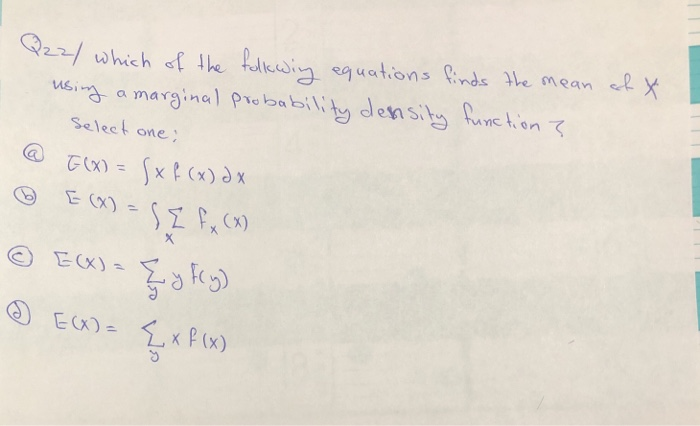 Q22/ which of the follewing equations finds the mean of X
using a marginal probability density function?
Select one:
ⓐ E(X) = ∫ x f (x) dx
ⓑ E (X) = ∫ Σ_x f_x (x)
ⓒ E(X) = Σ_y y f(y)
ⓓ E(X) = Σ_y x f (x)